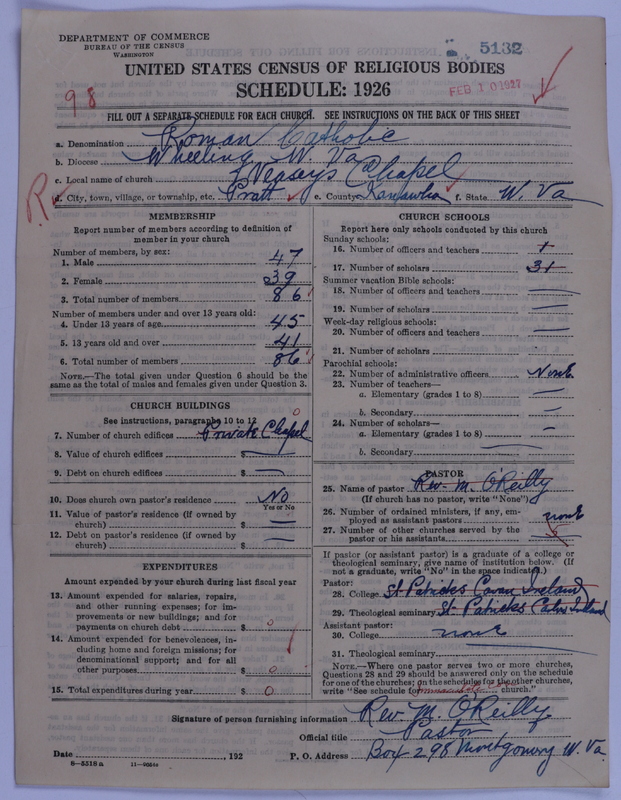 DEPARTMENT OF COMMERCE
BUREAU OF THE CENSUS
WASHINGTON
5132
UNITED STATES CENSUS OF RELIGIOUS BODIES
SCHEDULE: 1926
98
FEB 10 1927
FILL OUT A SEPARATE SCHEDULE FOR EACH CHURCH. SEE INSTRUCTIONS ON THE BACK OF THIS SHEET
a. Denomination Roman Catholic
b. Diocese Wheeling W. Va
c. Local name of church Chapel
R
d. City, town, village, or township, etc. Pratt e. County Kanawha f. State W. Va
MEMBERSHIP
Report number of members according to definition of
member in your church
Number of members, by sex:
1. Male 47
2. Female 39
3. Total number of members 86
Number of members under and over 13 years old:
4. Under 13 years of age 45
5. 13 years old and over 41
6. Total number of members 86
NOTE.—The total given under Question 6 should be the
same as the total of males and females given under Question 3.
CHURCH BUILDINGS
See instructions, paragraphs 10 to 12
0
7. Number of church edifices Private Chapel
8. Value of church edifices $ —
9. Debt on church edifices $ —
10. Does church own pastor's residence No
Yes or No
11. Value of pastor's residence (if owned by
church) $ —
12. Debt on pastor's residence (if owned by
church) $ —
EXPENDITURES
Amount expended by your church during last fiscal year
13. Amount expended for salaries, repairs,
and other running expenses; for im-
provements or new buildings; and for
payments on church debt $ 0
14. Amount expended for benevolences, in-
cluding home and foreign missions; for
denominational support; and for all
other purposes $ 0
15. Total expenditures during year $ 0
CHURCH SCHOOLS
Report here only schools conducted by this church
Sunday schools:
16. Number of officers and teachers 1
17. Number of scholars 31
Summer vacation Bible schools:
18. Number of officers and teachers —
19. Number of scholars —
Week-day religious schools:
20. Number of officers and teachers —
21. Number of scholars —
Parochial schools:
22. Number of administrative officers None
23. Number of teachers—
a. Elementary (grades 1 to 8) —
b. Secondary —
24. Number of scholars—
a. Elementary (grades 1 to 8) —
b. Secondary —
PASTOR
25. Name of pastor Rev. M. O'Reilly
(If church has no pastor, write "None")
26. Number of ordained ministers, if any, em-
ployed as assistant pastors none
27. Number of other churches served by the
pastor or his assistants
If pastor (or assistant pastor) is a graduate of a college or
theological seminary, give name of institution below. (If
not a graduate, write "No" in the space indicated.)
Pastor:
28. College St Patricks Cavan Ireland
29. Theological seminary St. Patricks Ireland
Assistant pastor:
30. College none
31. Theological seminary
NOTE.—Where one pastor serves two or more churches,
Questions 28 and 29 should be answered only on the schedule
for one of the churches; on the schedules for the other churches,
write "See schedule for church."
Signature of person furnishing information Rev. M. O'Reilly
Official title Pastor
Date , 192 P. O. Address Box 298 Montgomery W. Va.
8—5518a 11—9664